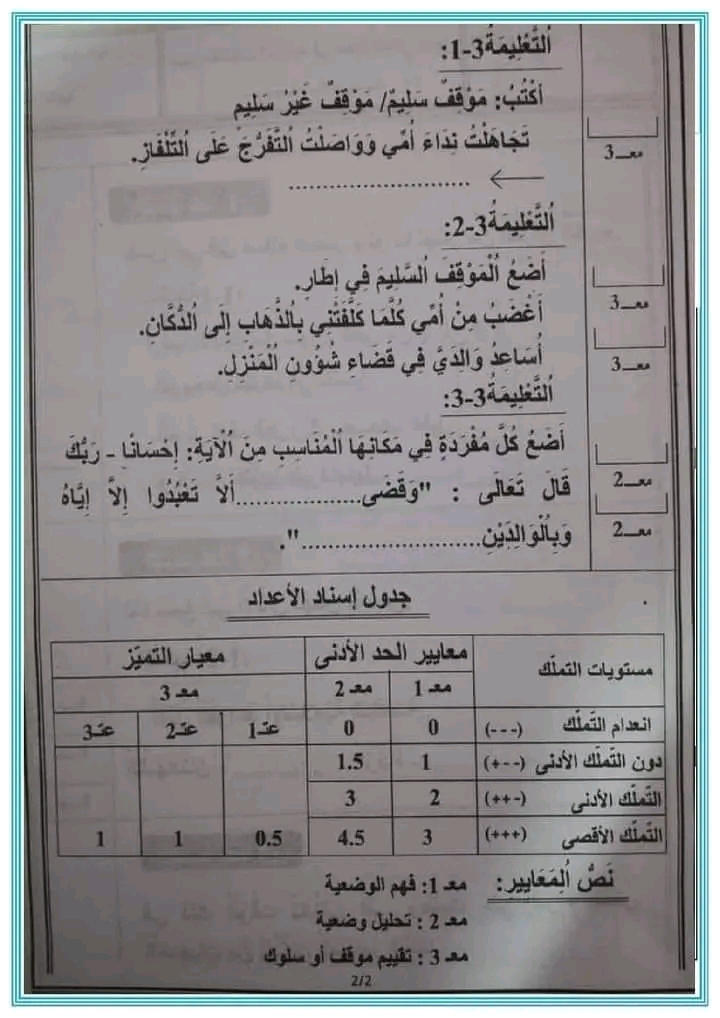 اَلتَّعْلِيمَةُ3-1:
أَكْتُبُ: مَوْقِفٌ سَلِيمٌ/ مَوْقِفٌ غَيْرُ سَلِيمٍ
تَجَاهَلْتُ نِدَاءَ أُمِّي وَوَاصَلْتُ اَلتَّفَرُّجَ عَلَى اَلتِّلْفَازِ.
معـ3
← ................................
اَلتَّعْلِيمَةُ3-2:
أَضَعُ اَلْمَوْقِفَ اَلسَّلِيمَ فِي إِطَارٍ.
معـ3
أَغْضَبُ مِنْ أُمِّي كُلَّمَا كَلَّفَتْنِي بِالذَّهَابِ إِلَى اَلدُّكَّانِ.
أُسَاعِدُ وَالِدَيَّ فِي قَضَاءِ شُؤُونِ اَلْمَنْزِلِ.
معـ3
اَلتَّعْلِيمَةُ3-3:
أَضَعُ كُلَّ مُفْرَدَةٍ فِي مَكَانِهَا اَلْمُنَاسِبِ مِنَ اَلْآيَةِ: إِحْسَانًا - رَبُّكَ
معـ2
قَالَ تَعَالَى : "وَقَضَى..................أَلَّا تَعْبُدُوا إِلَّا إِيَّاهُ
وَبِالْوَالِدَيْنِ..........................".
معـ2
جدول إسناد الأعداد
مستويات التملّك معايير الحد الأدنى معيار التميّز
معـ1 معـ2 معـ3
انعدام التّملّك (---) 0 0 عتـ1 عتـ2 عتـ3
دون التّملّك الأدنى (+--) 1 1.5
التّملّك الأدنى (++-) 2 3
التّملّك الأقصى (+++) 3 4.5 0.5 1 1
نَصُّ اَلْمَعَايِيرِ:
معـ 1: فهم الوضعية
معـ 2 : تحليل وضعية
معـ 3 : تقييم موقف أو سلوك
2/2